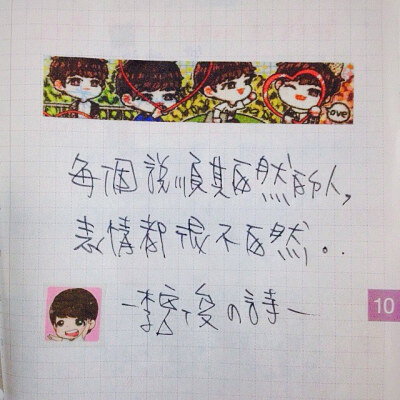 Love
每個說順其自然的人，
表情都很不自然．．
－李宏俊の詩－
10